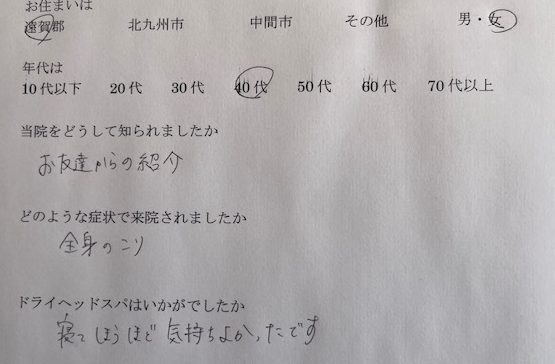 お住まいは
遠賀郡 北九州市 中間市 その他 男・女
年代は
10代以下 20代 30代 40代 50代 60代 70代以上
当院をどうして知られましたか
お友達からの紹介
どのような症状で来院されましたか
全身のこり
ドライヘッドスパはいかがでしたか
寝てしまうほど気持ちよかったです